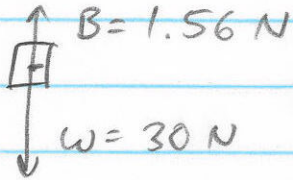 B = 1.56 N
w = 30 N